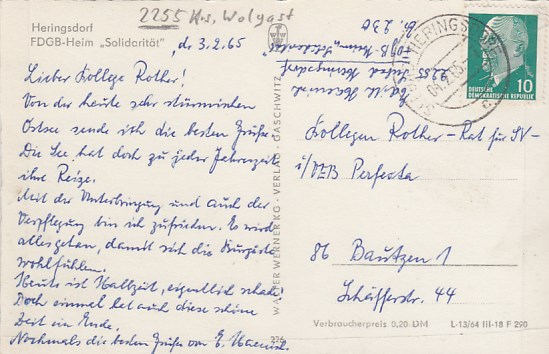 2255 Krs. Wolgast
Heringsdorf
FDGB-Heim „Solidarität“
, d. 3.2.65
Lieber Kollege Rother!
Von der heute sehr stürmischen
Ostsee sende ich die besten Grüße.
Die See hat doch zu jeder Jahreszeit
ihre Reize.
Mit der Unterbringung und auch der
Verpflegung bin ich zufrieden. Es wird
alles getan, damit sich die Kurgäste
wohlfühlen.
Heute ist Halbzeit, eigentlich schade!
Doch einmal hat auch diese schöne
Zeit ein Ende.
Nochmals die besten Grüße von E.
226
WALTER WERNER KG · VERLAG · GASCHWITZ
FDGB-Heim „Solidarität“
2255 Seebad Heringsdorf
HERINGSDORF
10
DEUTSCHE
DEMOKRATISCHE REPUBLIK
Kollegen Rother - Rat für SV -
i/VEB Perfecta
86 Bautzen 1
Schäfferstr. 44
Verbraucherpreis 0,20 DM L-13/64 III-18 F 290